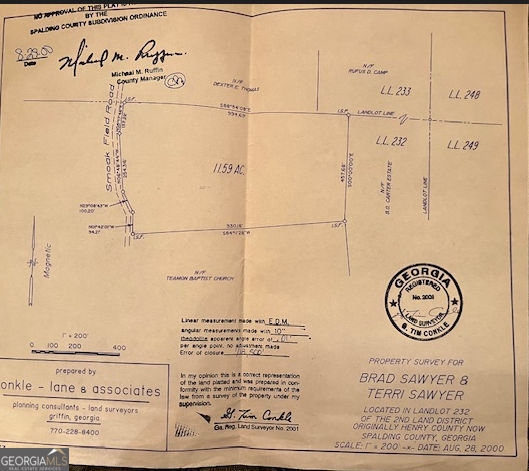 NO APPROVAL OF THIS PLAT IS
BY THE
SPALDING COUNTY SUBDIVISION ORDINANCE
8-29-00
Date
Michael M. Ruffin
Michael M. Ruffin
County Manager
N/F
DEXTER E. THOMAS
N/F
RUFUS D. CAMP
L.L. 233
L.L. 248
I.S.F.
I.S.F.
LANDLOT LINE
L.L. 232
L.L. 249
Smoak Field Road
11.59 AC.
457.68'
S00°00'00"E
N/F
B.G. CARTER ESTATE
LANDLOT LINE
100.20'
94.21'
I.S.F.
930.16'
I.S.F.
N/F
TEAMON BAPTIST CHURCH
Magnetic
GEORGIA
REGISTERED
No. 2001
LAND SURVEYOR
G. TIM CONKLE
Linear measurement made with E.D.M.
angular measurements made with 10"
theodolite apparent angle error of .01"
per angle point, no adjustment made
Error of closure
1" = 200'
0 100 200 400
prepared by
onkle - lane & associates
planning consultants - land surveyors
griffin, georgia
770-228-8400
In my opinion this is a correct representation
of the land platted and was prepared in con-
formity with the minimum requirements of the
law from a survey of the property under my
supervision.
G. Tim Conkle
Ga. Reg. Land Surveyor No. 2001
PROPERTY SURVEY FOR
BRAD SAWYER &
TERRI SAWYER
LOCATED IN LANDLOT 232
OF THE 2ND LAND DISTRICT
ORIGINALLY HENRY COUNTY NOW
SPALDING COUNTY, GEORGIA
SCALE: 1" = 200' -x- DATE: AUG. 28, 2000
GEORGIAMLS
REAL ESTATE SERVICES